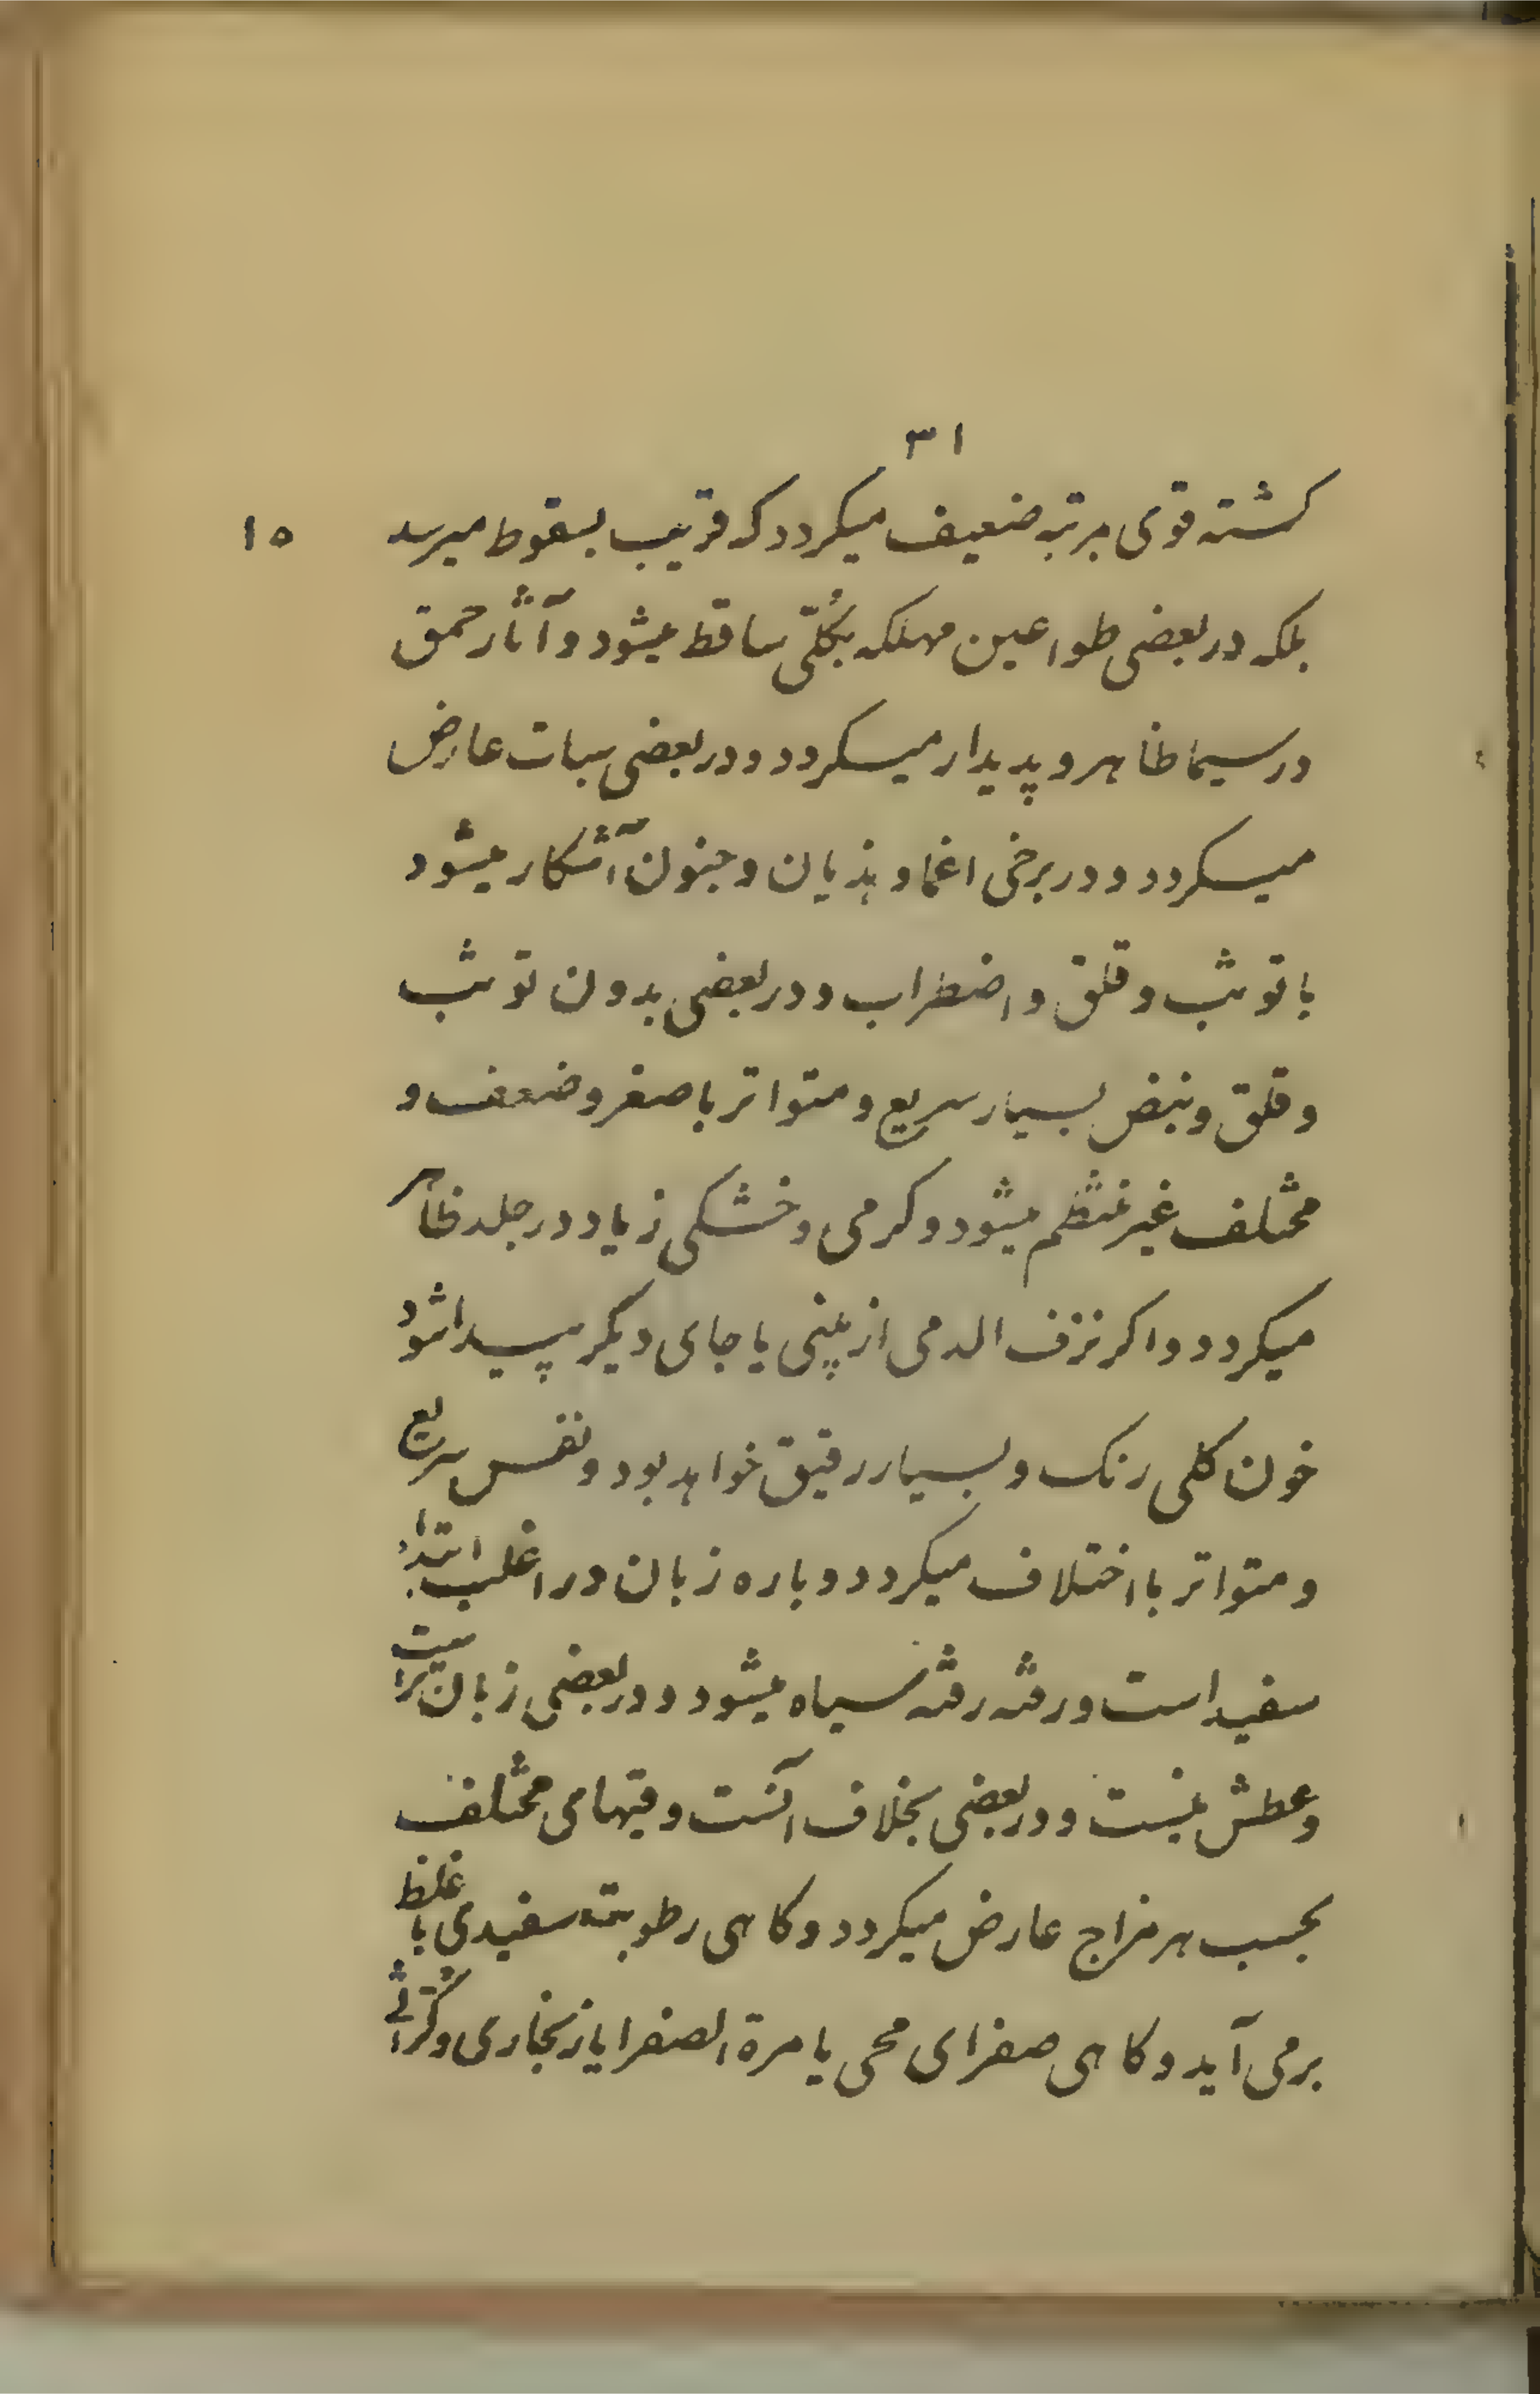 ۳۱
۱۵
کشته قوی بمرتبه ضعیف میکردد که قریب بسقوط میرسد
بلکه در بعضی طواعین مهلکه بکُلّی ساقط میشود و آثار حمق
در سیما ظاهر و پدیدار میکردد و در بعضی سبات عارض
میکردد و در برخی اغما و هذیان و جنون آشکار میشود
با توثب و قلق و اضطراب و در بعضی بدون توثب
و قلق و نبض بسیار سریع و متواتر با صغر و ضعف و
مختلف غیر منتظم میشود و کرمی و خشکی زیاد در جلد ظاهر
میکردد و اکر نزف الدمی از بینی یا جای دیکر پیدا شود
خون کلی رنک و بسیار رقیق خواهد بود و نفس سریع
و متواتر با اختلاف میکردد و باره زبان در اغلب ابتداء
سفید است و رفته رفته سیاه میشود و در بعضی زبان تر است
و عطش نیست و در بعضی بخلاف آنست و قیهای مختلف
بحسب هر مزاج عارض میکردد و کاهی رطوبته سفیدی با غلظ
بر می آید و کاهی صفرای محی یا مرة الصفرا یا زنجاری و کُرّاثی